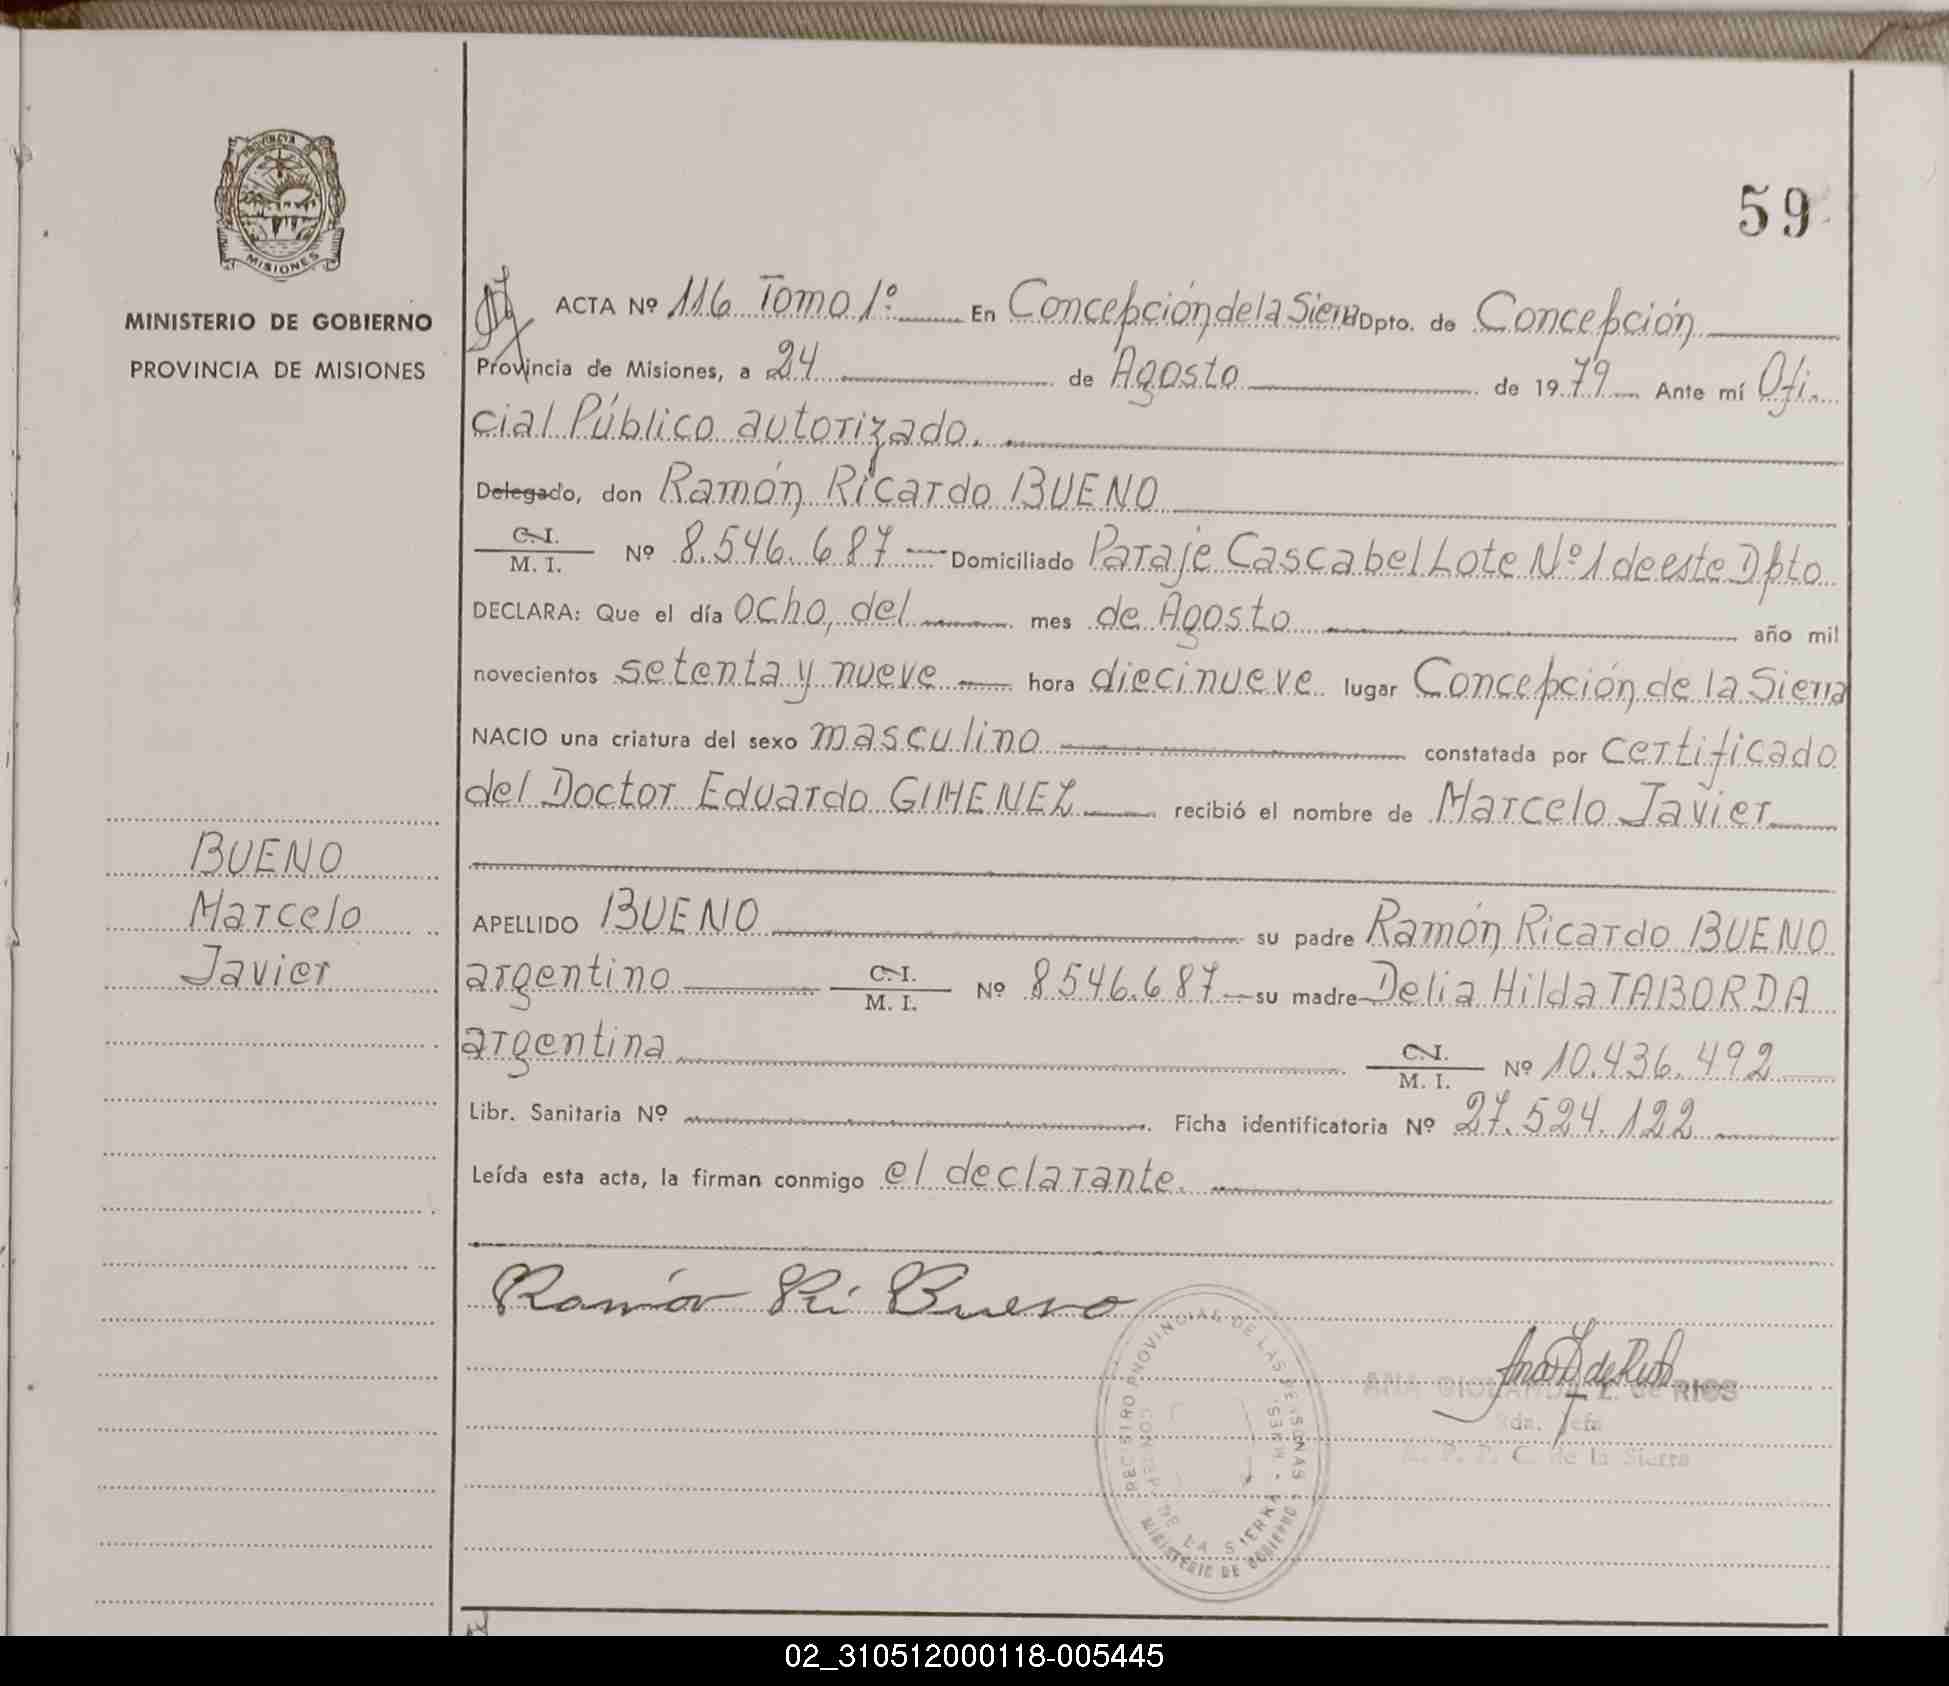 PROVINCIA DE
MISIONES
MINISTERIO DE GOBIERNO
PROVINCIA DE MISIONES
BUENO
Marcelo
Javier
59
ACTA Nº 116 Tomo 1º En Concepción de la Sierra Dpto. de Concepción
Provincia de Misiones, a 24 de Agosto de 1979 Ante mí Ofi-
cial Público autorizado.
Delegado, don Ramón Ricardo BUENO
C. I.
M. I. Nº 8.546.687 Domiciliado Paraje Cascabel Lote Nº 1 de este Dpto
DECLARA: Que el día ocho, del mes de Agosto año mil
novecientos setenta y nueve hora diecinueve lugar Concepción de la Sierra
NACIO una criatura del sexo masculino constatada por certificado
del Doctor Eduardo GIMENEZ recibió el nombre de Marcelo Javier
APELLIDO BUENO su padre Ramón Ricardo BUENO
argentino C. I. M. I. Nº 8546.687 su madre Delia Hilda TABORDA
argentina C. I. M. I. Nº 10.436.492
Libr. Sanitaria Nº Ficha identificatoria Nº 27.524.122
Leída esta acta, la firman conmigo el declarante.
Ramón Ri Bueno
REGISTRO PROVINCIAL DE LAS PERSONAS
MINISTERIO DE GOBIERNO
DE LA SIERRA
ANA de RIOS
Jefa
C. de la Sierra
02_310512000118-005445